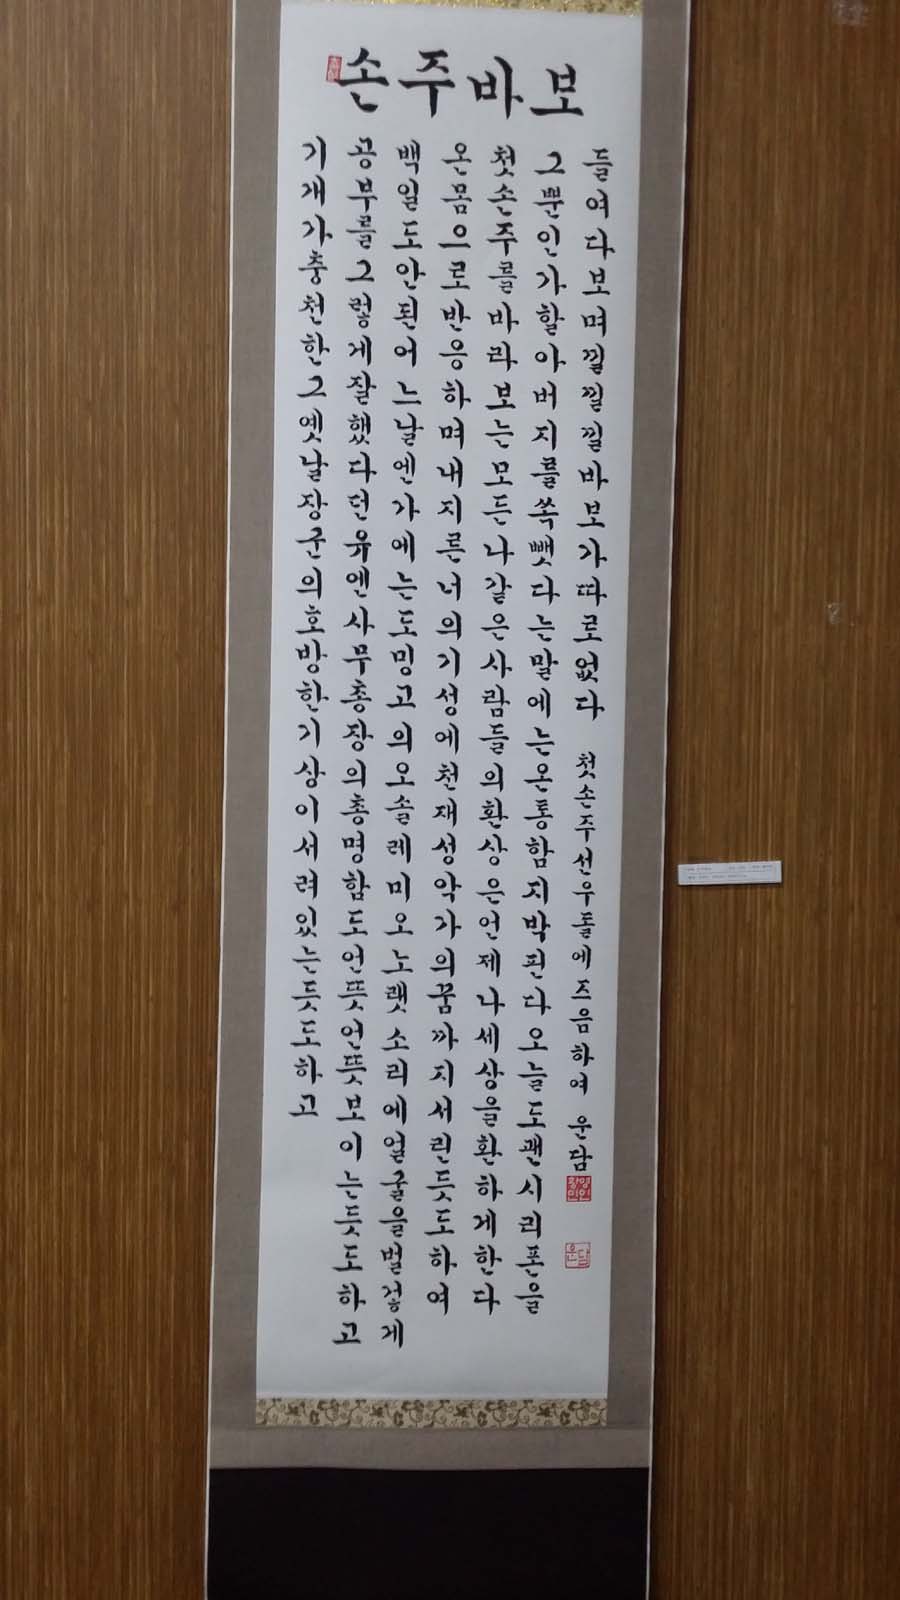 손주바보
기개가충천한그옛날장군의호방한기상이서려있는듯도하고
공부를그렇게잘했다던유엔사무총장의총명함도언뜻언뜻보이는듯도하고
백일도안된어느날엔가에는도밍고의오솔레미오노랫소리에얼굴을벌겋게
온몸으로반응하며내지른너의기성에천재성악가의꿈까지서린듯도하여
첫손주를바라보는모든나같은사람들의환상은언제나세상을환하게한다
그뿐인가할아버지를쏙뺏다는말에는온통함지박핀다오늘도괜시리폰을
들여다보며낄낄낄바보가따로없다 첫손주선우돌에즈음하여 운담
운담